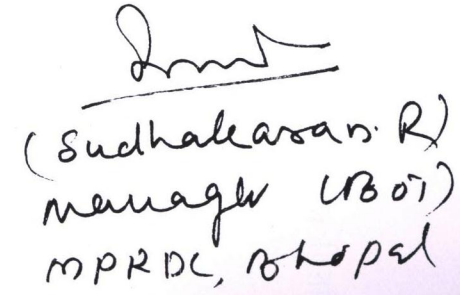 (Sudhakaran. R)
Manager (BOT)
MPRDC, Bhopal